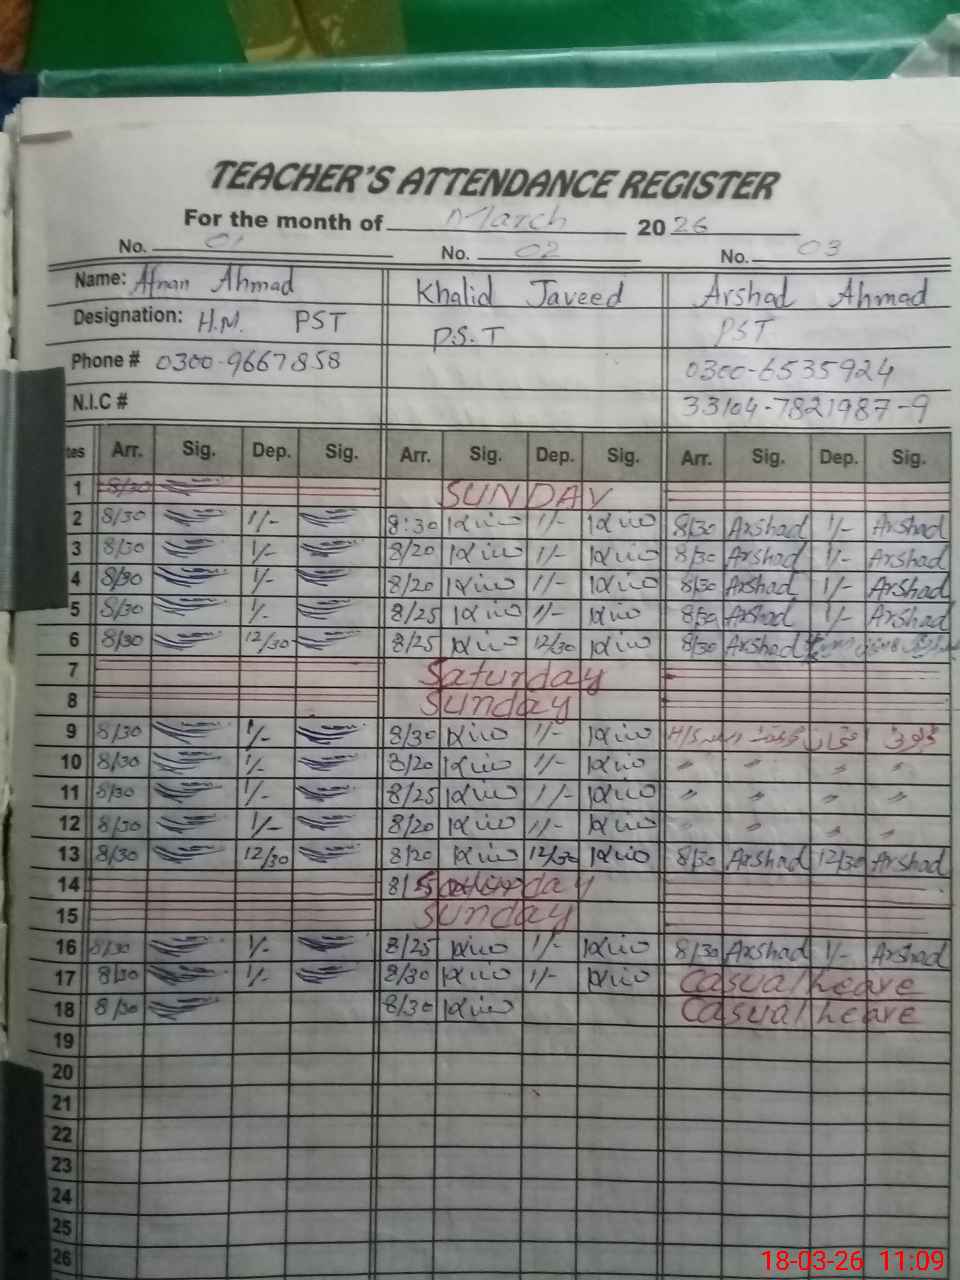 TEACHER'S ATTENDANCE REGISTER
For the month of March 2026
No. 01 No. 02 No. 03
Name: Afnan Ahmad Khalid Javeed Arshad Ahmad
Designation: H.M. PST P.S.T PST
Phone # 0300-9667858 0300-6535924
N.I.C # 33104-7821987-9
tes Arr. Sig. Dep. Sig. Arr. Sig. Dep. Sig. Arr. Sig. Dep. Sig.
1 8/30 SUNDAY
2 8/30 1/- 8:30 1/- 8/30 Arshad 1/- Arshad
3 8/30 1/- 8/20 1/- 8/30 Arshad 1/- Arshad
4 8/30 1/- 8/20 1/- 8/30 Arshad 1/- Arshad
5 8/30 1/- 8/25 1/- 8/30 Arshad 1/- Arshad
6 8/30 12/30 8/25 12/30 8/30 Arshad
7 Saturday
8 Sunday
9 8/30 1/- 8/30 1/- H/S
10 8/30 1/- 8/20 1/- " " " "
11 8/30 1/- 8/25 1/- " " " "
12 8/30 1/- 8/20 1/- " " " "
13 8/30 12/30 8/20 12/30 8/30 Arshad 12/30 Arshad
14 Saturday
15 Sunday
16 8/30 1/- 8/25 1/- 8/30 Arshad 1/- Arshad
17 8/30 1/- 8/30 1/- Casual Leave
18 8/30 8/30 Casual Leave
19
20
21
22
23
24
25
26
18-03-26 11:09